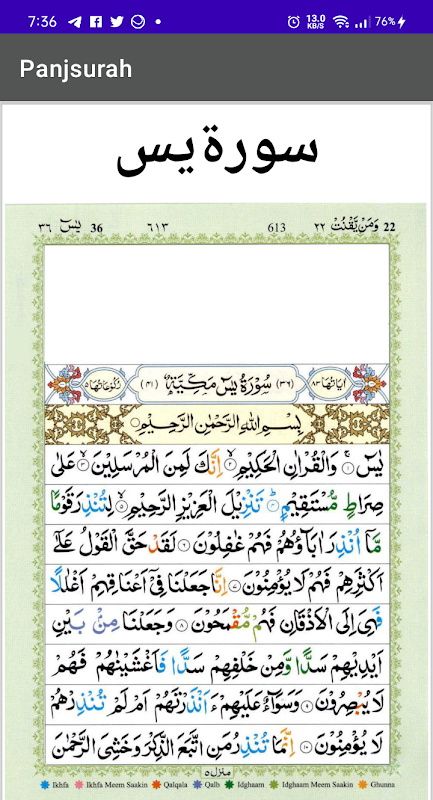 7:36 13.0 KB/S 76%
Panjsurah
سورة يس
22 وَمَنْ يَّقْنُتْ ٢٢ 613 ٦١٣ 36 يٰسٓ ٣٦
اٰيَاتُهَا ٨٣ (٣٦) سُوْرَةُ يٰسٓ مَكِّيَّةٌ (٤١) رُكُوْعَاتُهَا ٥
بِسْمِ اللّٰهِ الرَّحْمٰنِ الرَّحِيْمِ
يٰسٓ ۝١ وَالْقُرْاٰنِ الْحَكِيْمِ ۝٢ اِنَّكَ لَمِنَ الْمُرْسَلِيْنَ ۝٣ عَلٰى
صِرَاطٍ مُّسْتَقِيْمٍ ۝٤ تَنْزِيْلَ الْعَزِيْزِ الرَّحِيْمِ ۝٥ لِتُنْذِرَ قَوْمًا
مَّاۤ اُنْذِرَ اٰبَآؤُهُمْ فَهُمْ غٰفِلُوْنَ ۝٦ لَقَدْ حَقَّ الْقَوْلُ عَلٰٓى
اَكْثَرِهِمْ فَهُمْ لَا يُؤْمِنُوْنَ ۝٧ اِنَّا جَعَلْنَا فِيْۤ اَعْنَاقِهِمْ اَغْلٰلًا
فَهِيَ اِلَى الْاَذْقَانِ فَهُمْ مُّقْمَحُوْنَ ۝٨ وَجَعَلْنَا مِنْۢ بَيْنِ
اَيْدِيْهِمْ سَدًّا وَّمِنْ خَلْفِهِمْ سَدًّا فَاَغْشَيْنٰهُمْ فَهُمْ
لَا يُبْصِرُوْنَ ۝٩ وَسَوَآءٌ عَلَيْهِمْ ءَاَنْذَرْتَهُمْ اَمْ لَمْ تُنْذِرْهُمْ
لَا يُؤْمِنُوْنَ ۝١٠ اِنَّمَا تُنْذِرُ مَنِ اتَّبَعَ الذِّكْرَ وَخَشِيَ الرَّحْمٰنَ
منزل ٥
Ikhfa Ikhfa Meem Saakin Qalqala Qalb Idghaam Idghaam Meem Saakin Ghunna